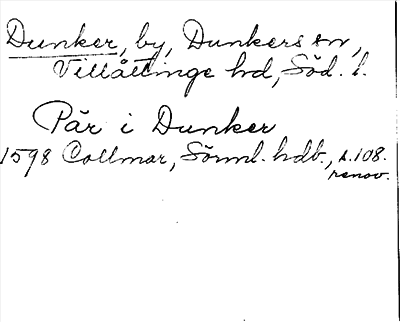 Dunker, by, Dunkers sn,
Villåttinge hd, Söd. l.
Pär i Dunker
1598 Collmar, Sörml. hdb., s. 108.
renov.